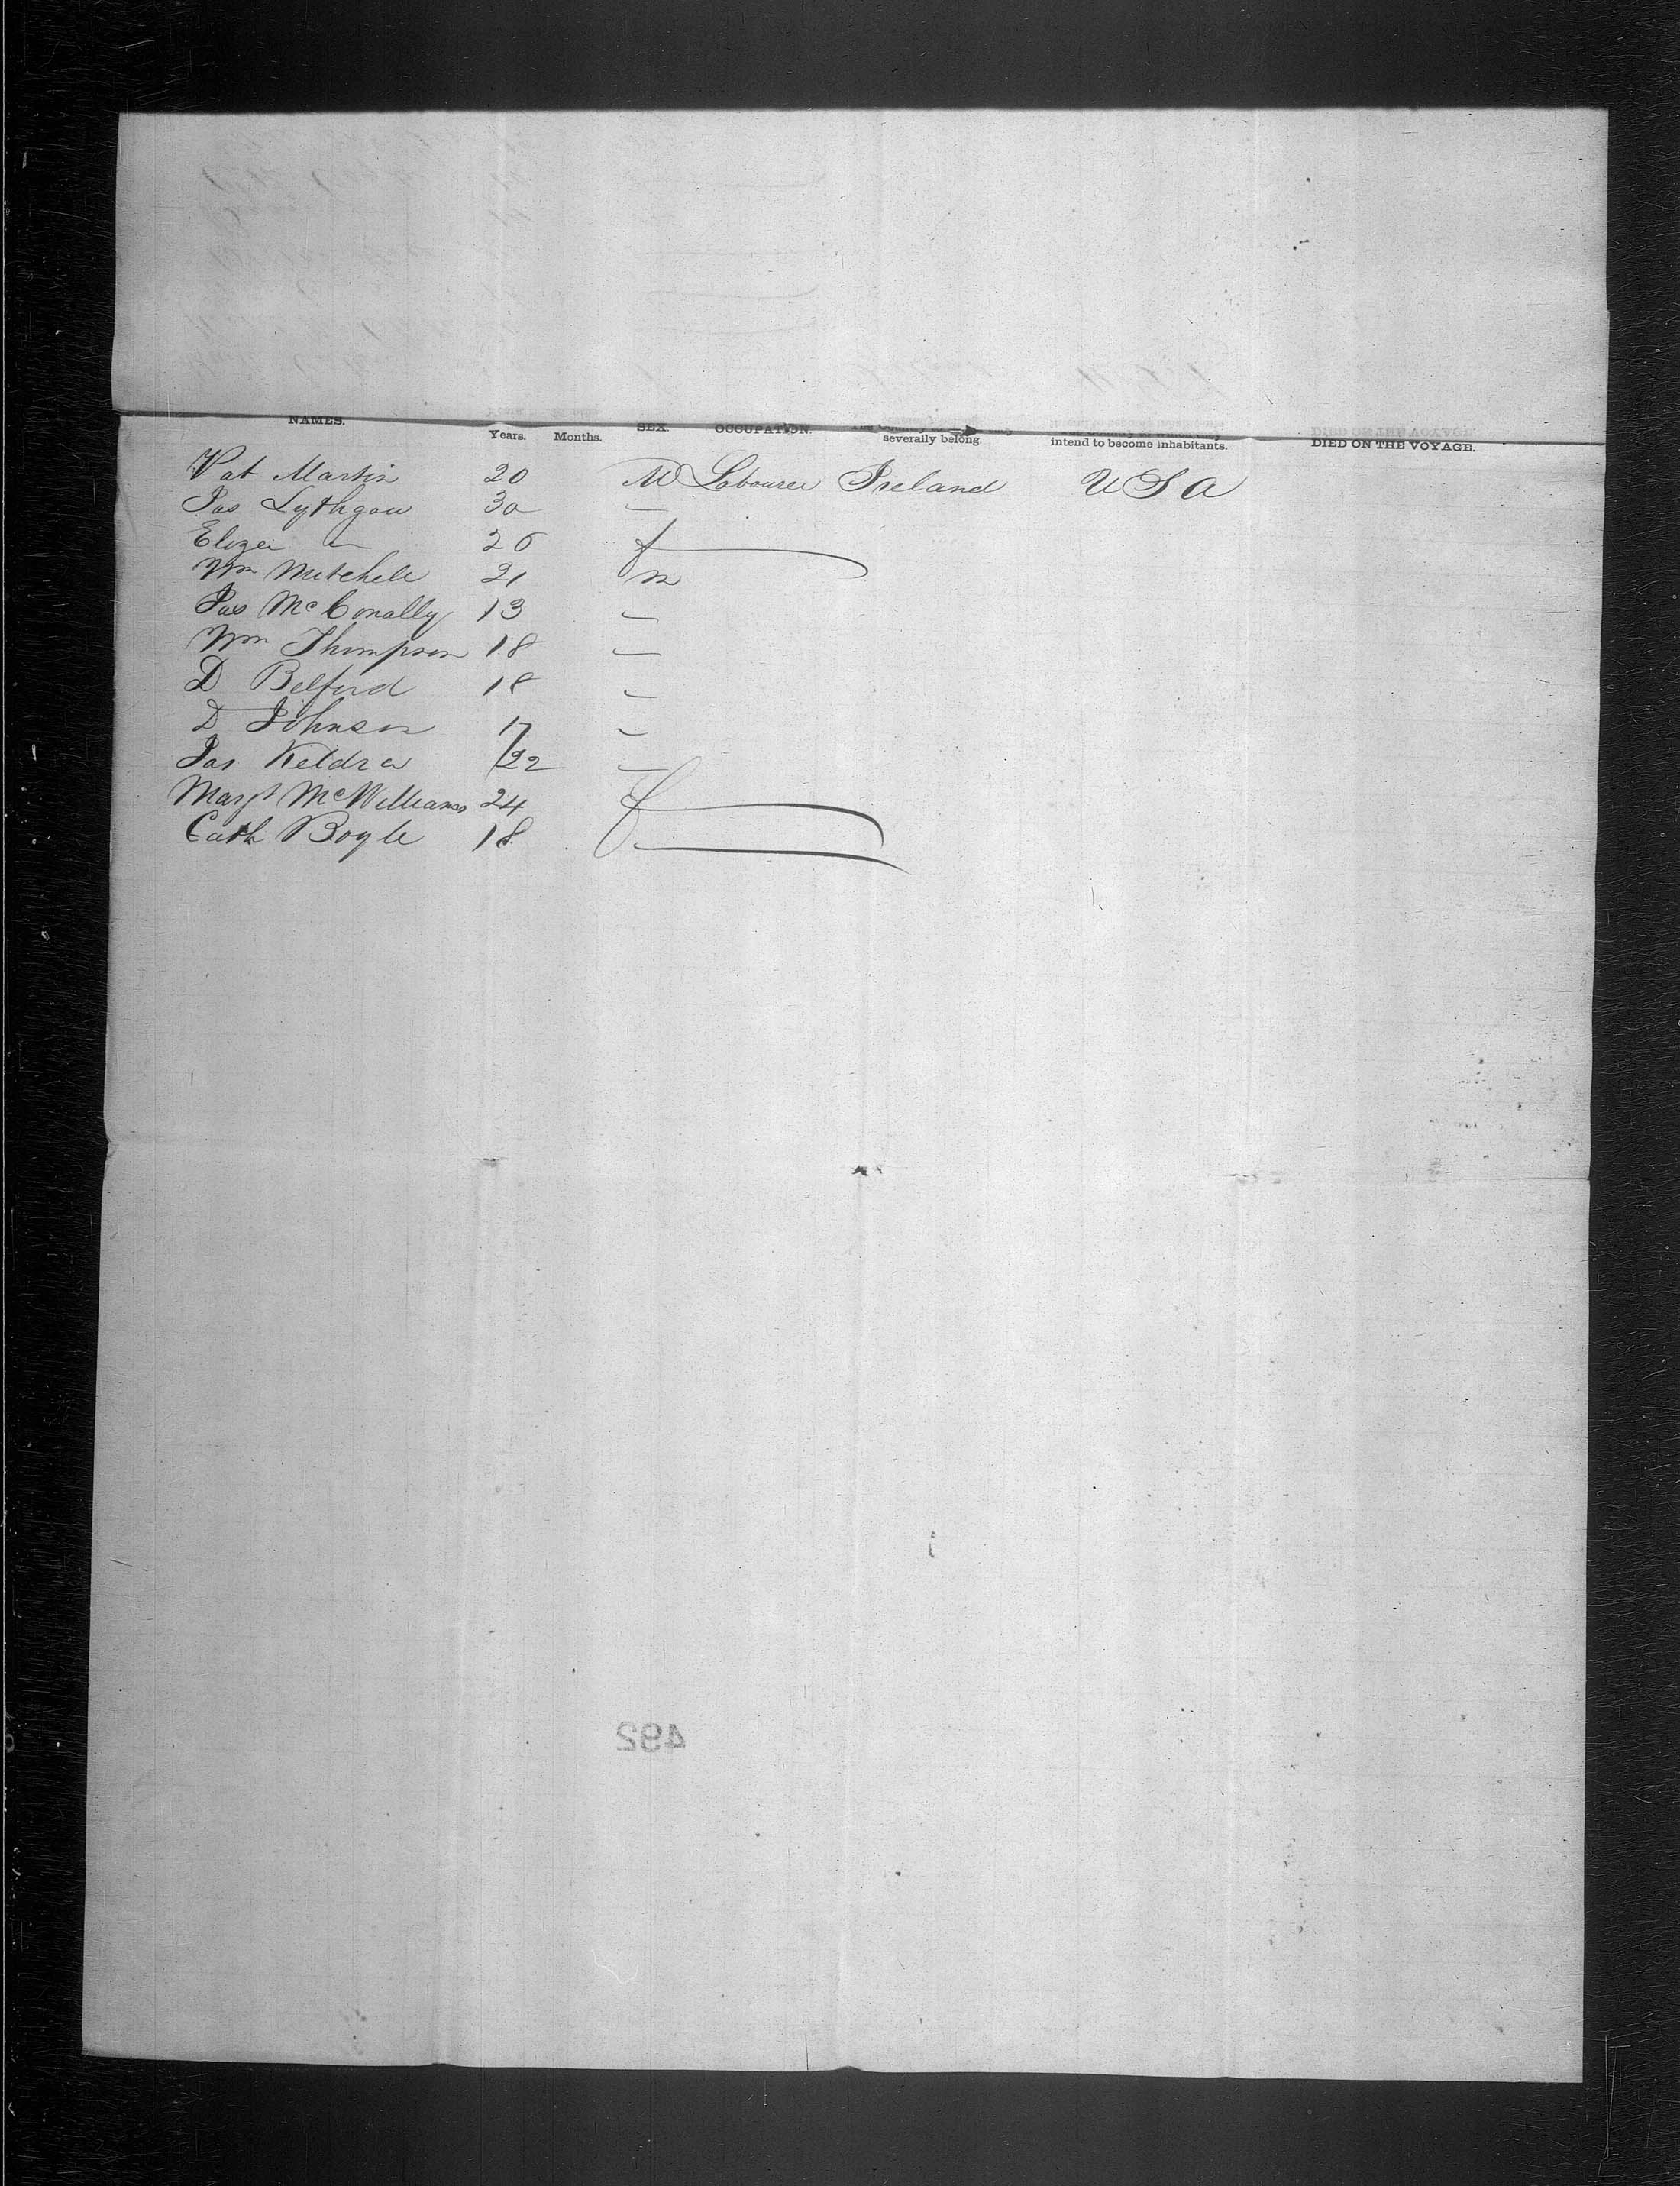 NAMES. Years. Months. SEX. OCCUPATION. severally belong. intend to become inhabitants. DIED ON THE VOYAGE.
Pat Martin 20 M Labourer Ireland USA
Jas Lythgow 30 —
Eliza — 26 f
Wm Mitchell 21 m
Jas McConally 13 —
Wm Thompson 18 —
D Belford 18 —
D Johnson 17 —
Jas Keldra 22 —
Margt McWilliams 24 f
Cath Boyle 18
492